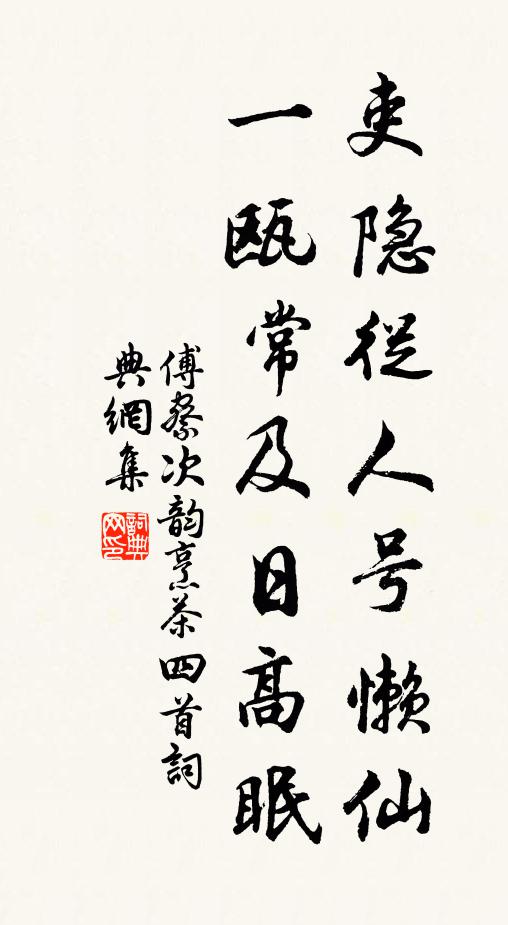 吏隐從人号懒仙
一瓯常及日高眠
傅察次韵烹茶四首詞
典網集
詞典网印